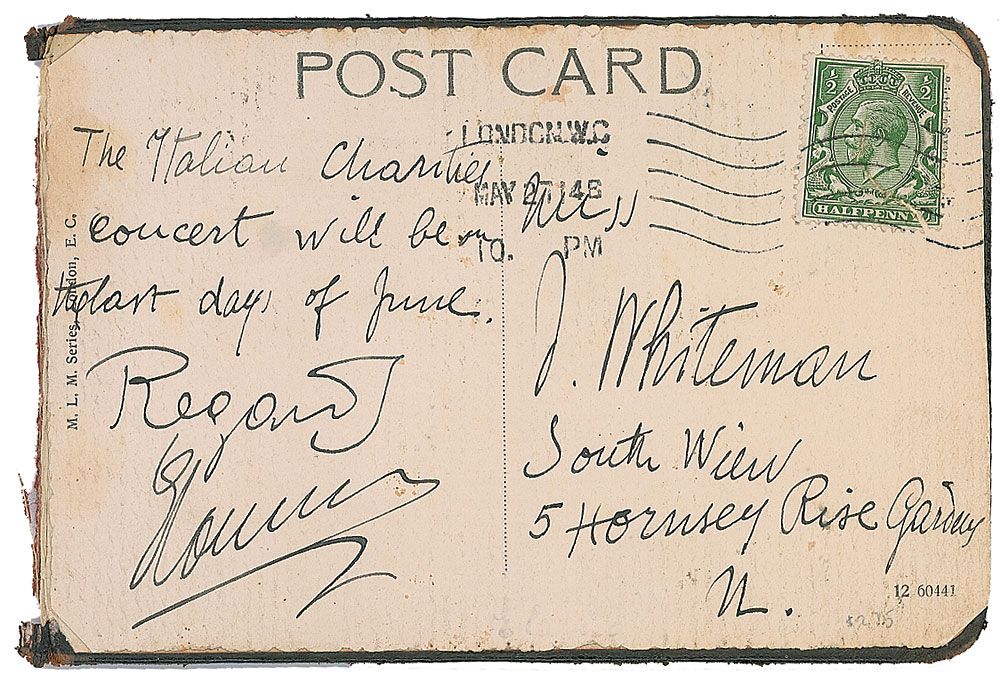 POST CARD
The Italian Charities
concert will be in
the last days of June.
Regards
LONDON.W.C
MAY 27 14
10. PM
½ ½
POSTAGE REVENUE
HALFPENNY
Miss
J. Whiteman
South Wiew
5 Hornsey Rise Gardens
N.
M. L. M. Series, London, E. C.
12 60441